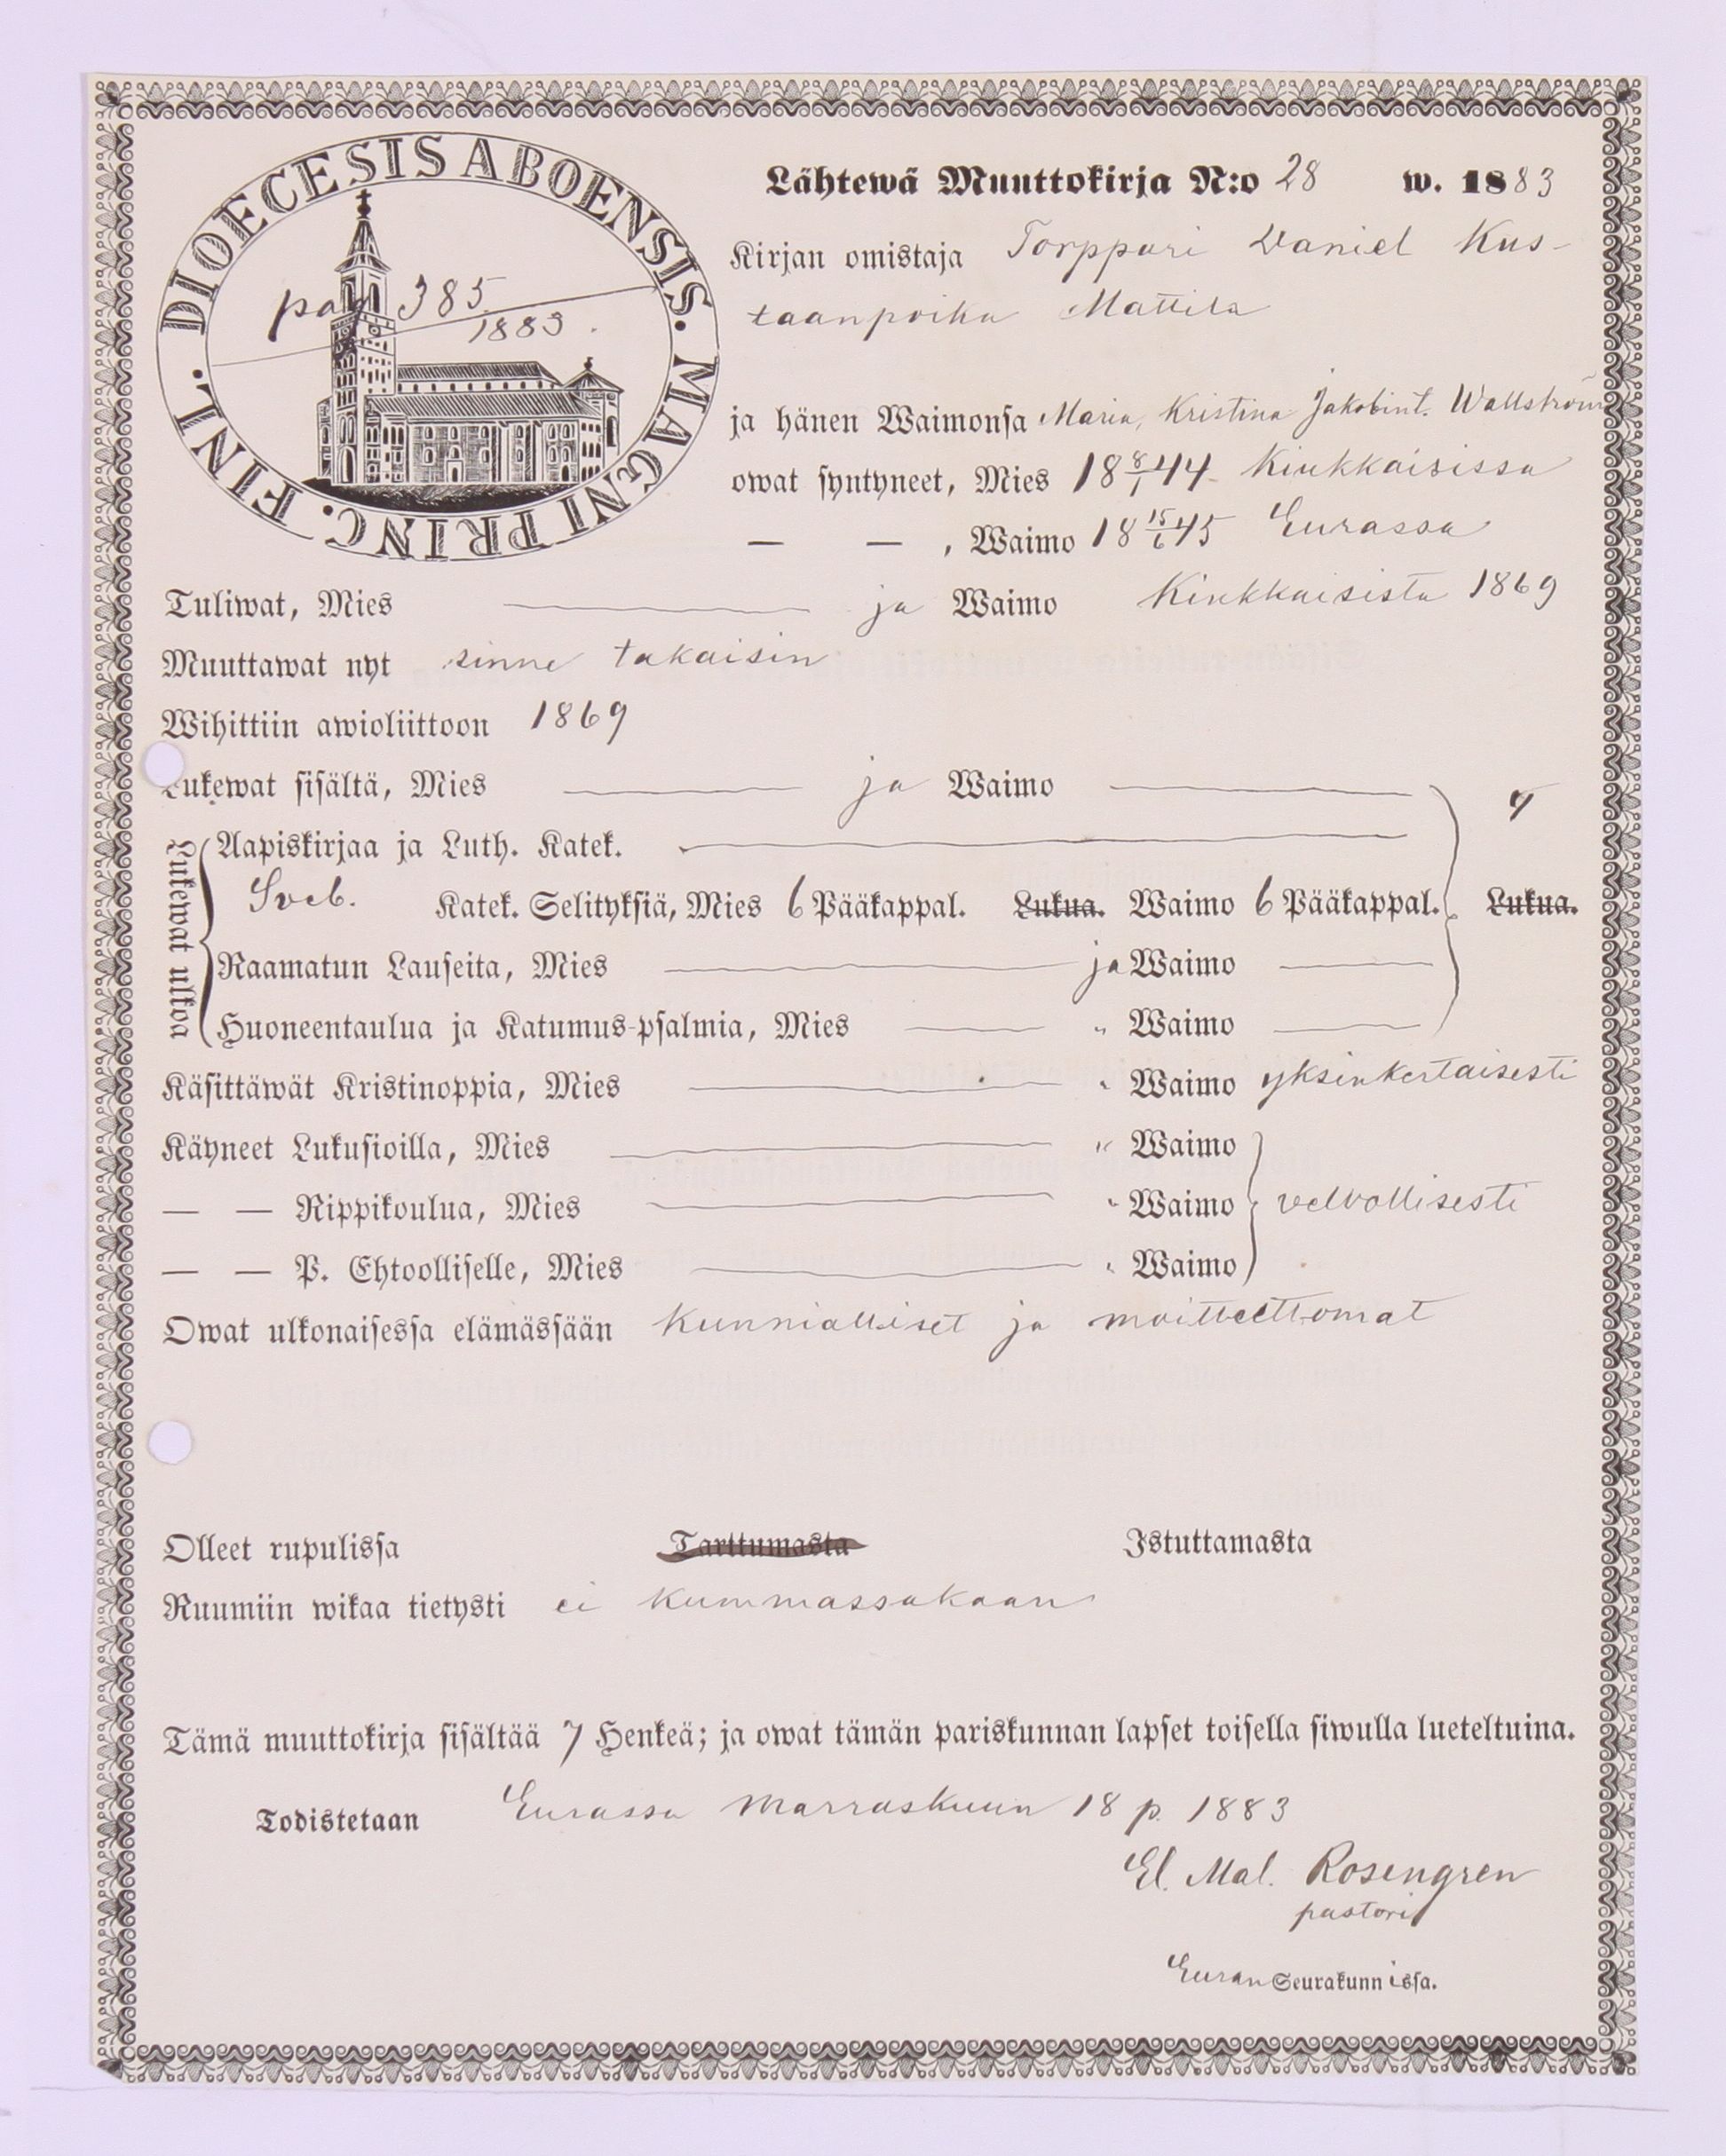 DIOECESIS ABOENSIS. MAGNI PRINC. FINL.
pag 385
1883.
Lähtewä Muuttokirja N:o 28 w. 1883
Kirjan omistaja Torppari Daniel Kus-
taanpoika Mattila
ja hänen Waimonsa Maria, Kristina Jakobint. Wallström
owat syntyneet, Mies 18 8/1 44 Kiukkaisissa
— — , Waimo 18 15/6 45 Eurassa
Tuliwat, Mies ja Waimo Kiukkaisista 1869
Muuttawat nyt sinne takaisin
Wihittiin awioliittoon 1869
Lukewat sisältä, Mies ja Waimo
Lukewat ulkoa
Aapiskirjaa ja Luth. Katek.
Sveb. Katek. Selityksiä, Mies 6 Pääkappal. Lukua. Waimo 6 Pääkappal. Lukua.
Raamatun Lauseita, Mies ja Waimo
Huoneentaulua ja Katumus-psalmia, Mies " Waimo
Käsittäwät Kristinoppia, Mies " Waimo yksinkertaisesti
Käyneet Lukusioilla, Mies " Waimo
— — Rippikoulua, Mies " Waimo velvollisesti
— — P. Ehtoolliselle, Mies " Waimo
Owat ulkonaisessa elämässään kunnialliset ja moitteettomat
Olleet rupulissa Tarttumasta Istuttamasta
Ruumiin wikaa tietysti ei kummassakaan
Tämä muuttokirja sisältää 7 Henkeä; ja owat tämän pariskunnan lapset toisella siwulla lueteltuina.
Todistetaan Eurassa Marraskuun 18 p. 1883
El. Mal. Rosengren
pastori
Euran Seurakunnissa.